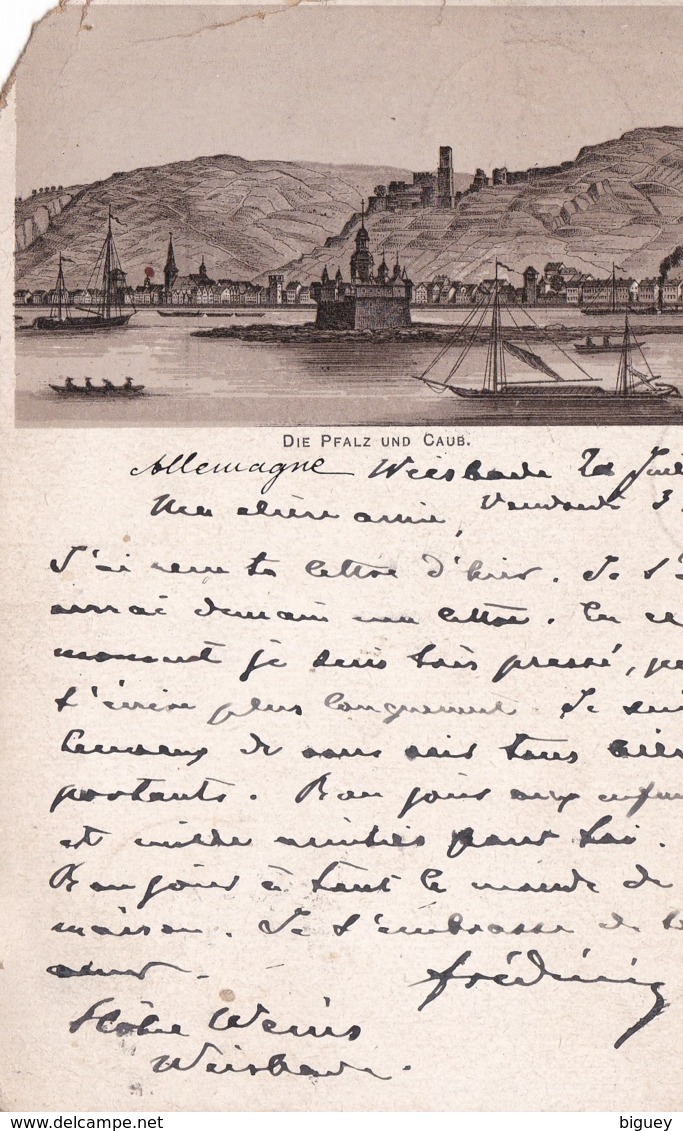 DIE PFALZ UND CAUB.
Allemagne Wiesbade
Ma chère amie, Vendredi 3
J'ai reçu ta lettre d'hier. Je t'
demain une lettre. En ce
moment je suis très pressé,
t'écrire plus longuement. Je suis
heureux de vous savoir tous bien
portants. Bonjours aux
et mille amitiés pour toi.
Bonjours à tout le monde de
maison. Je t'embrasse de
Frédéric
Wiesbade.
delcampe.net
biguey